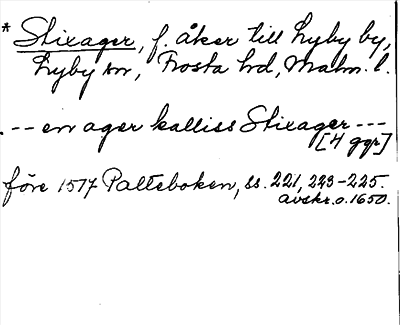 * Stixager, f. åker till Lyby by,
Lyby sn, Frosta hd, Malm. l.
--- en ager kalliss Stixager ---
[4 ggr]
före 1517 Palteboken, ss. 221, 223-225.
avskr. o. 1650.